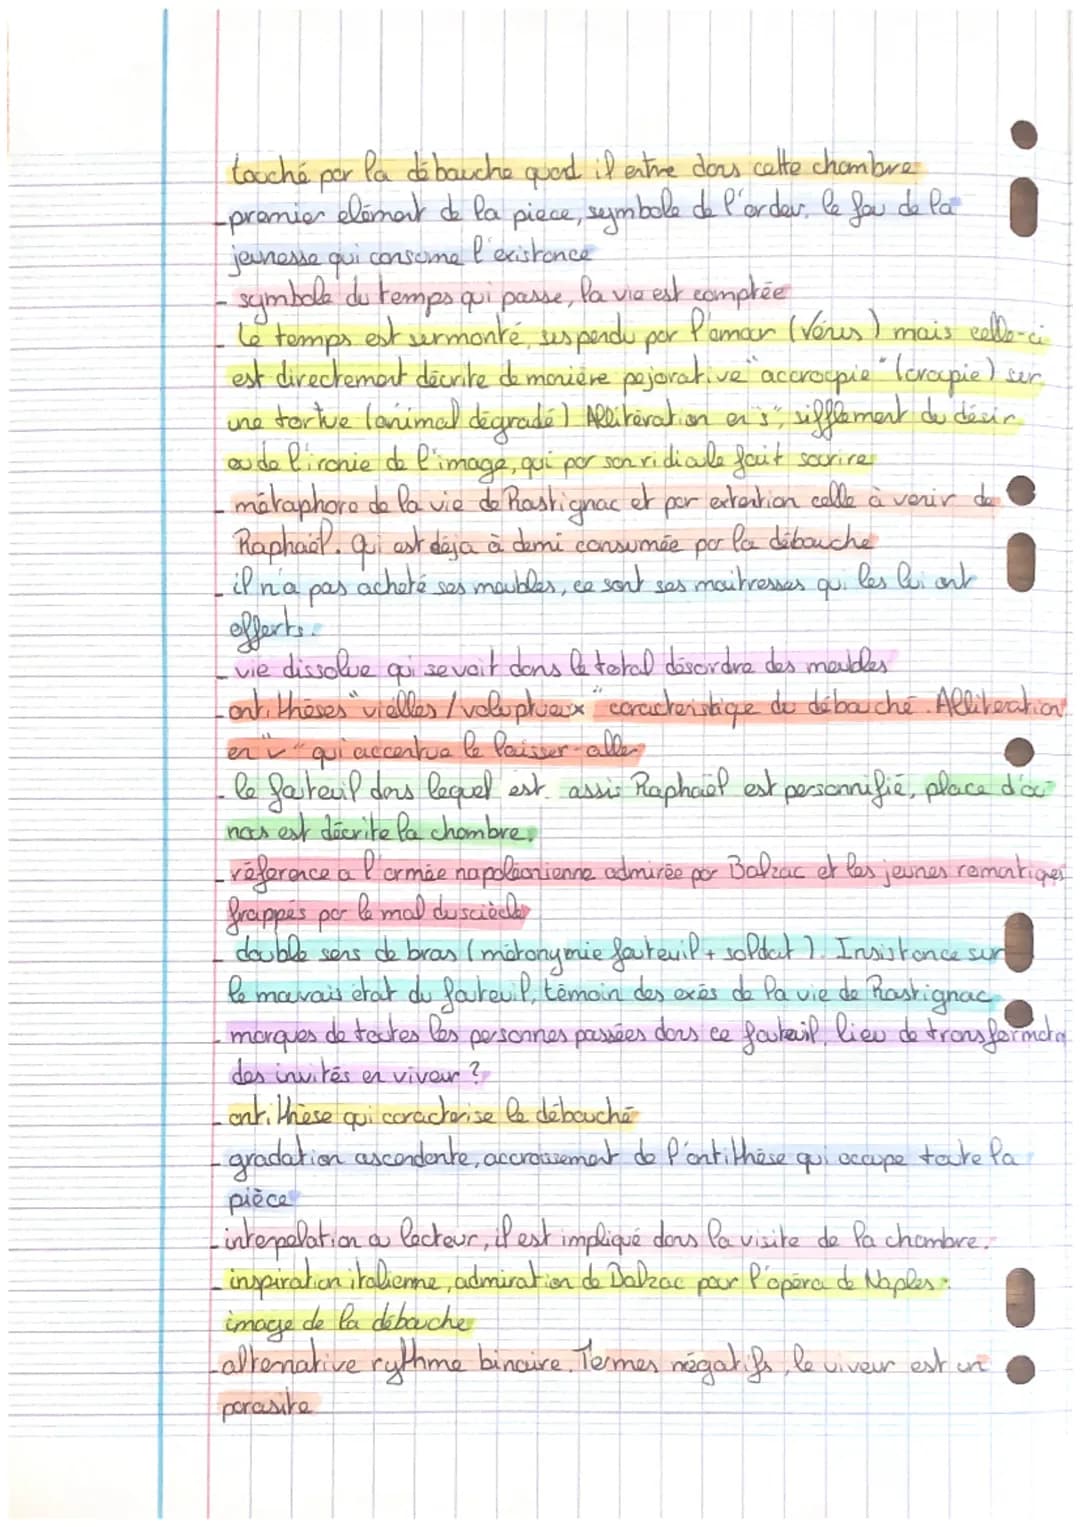 touché par la débauche quand il entre dans cette chambre
- premier élément de la piece, symbole de l'ordeur, le feu de la
jeunesse qui consume l'existance
- symbole du temps qui passe, la vie est comptée
- Le temps est surmonté, suspendu par l'amour (Vénus) mais celle-ci
est directement décrite de manière pejorative "accroupie" (croupie) sur
une tortue (animal dégradé) Allitération en "s", sifflement du désir
ou de l'ironie de l'image, qui par son ridicule fait sourire
- métaphore de la vie de Rastignac et par extention celle à venir de
Raphaël. qui est déja à demi consumée par la débauche
- il n'a pas acheté ses meubles, ce sont ses maitresses qui les lui ont
offerts.
- vie dissolue qui se voit dans le total désordre des meubles
- antithèses "vielles / voluptueux" caracteristique du débauché. Alliteration
en "v" qui accentue le laisser-aller
- le fauteuil dans lequel est assis Raphaël est personnifié, place d'où
nous est décrite la chambre.
- réference a l'armée napoléonienne admirée par Balzac et les jeunes romantiques
frappés par le mal du sciècle
- double sens de bras (métonymie fauteuil + soldat). Insistance sur
le mauvais état du fauteuil, témoin des exès de la vie de Rastignac
- marques de toutes les personnes passées dans ce fauteuil, lieu de transformato
des invités en viveur ?
- antithèse qui caracterise le débauché
- gradation ascendente, accroissement de l'antithèse qui occupe toute la
pièce
- interpelation au lecteur, il est impliqué dans la visite de la chambre.
- inspiration italienne, admiration de Balzac pour l'opéra de Naples :
image de la débauche
- alternative rythme binaire. Termes négatifs, le viveur est un
parasite